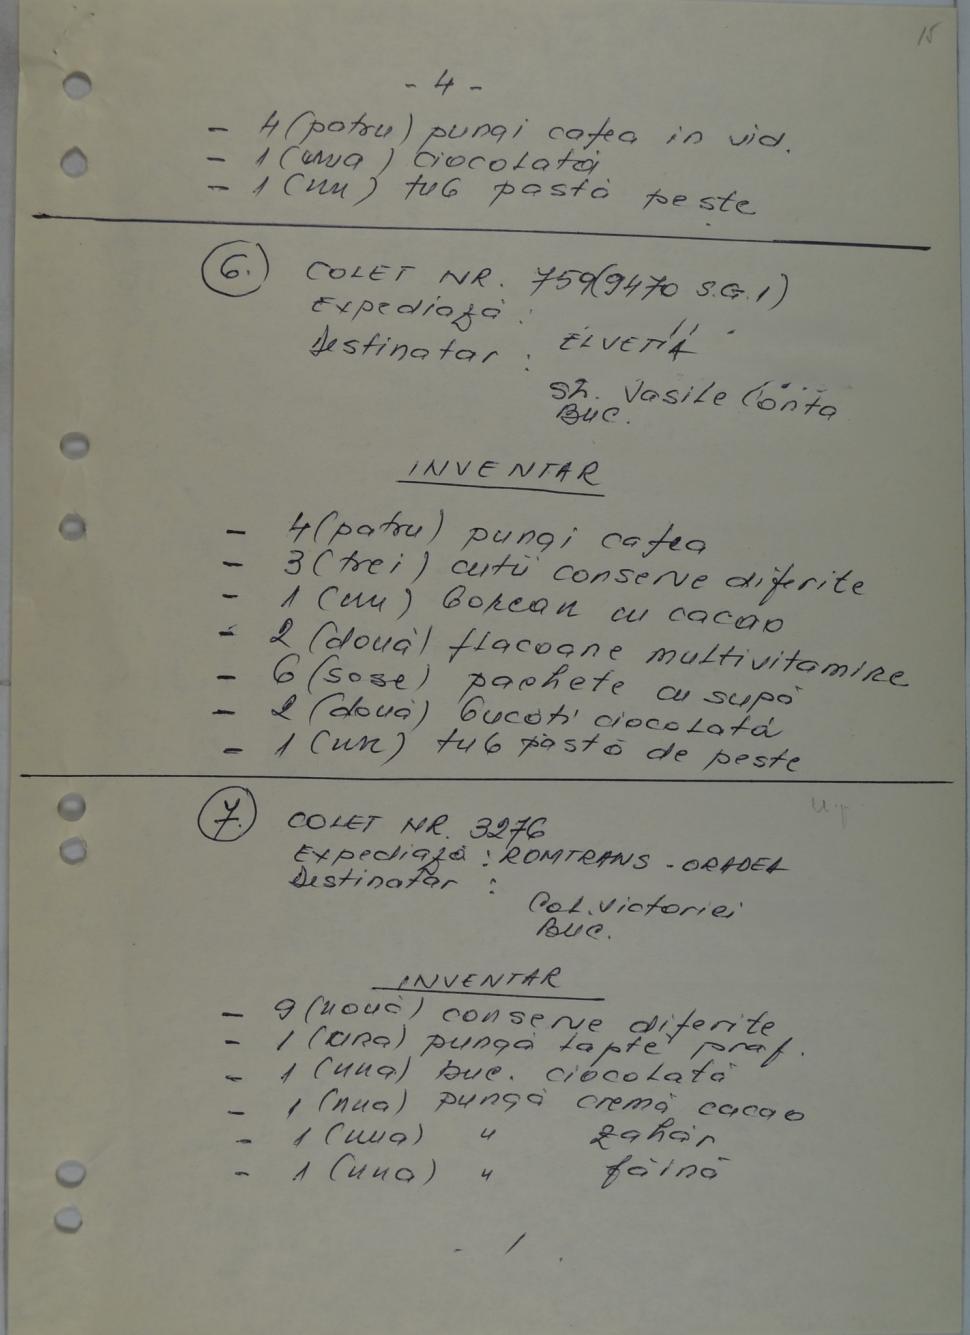 15
- 4 -
- 4 (patru) pungi cafea in vid.
- 1 (una) ciocolată
- 1 (un) tub pastă peste
6. COLET NR. 759(9470 S.G.1)
Expediază :
ELVETIA
Destinatar :
Str. Vasile Conta
Buc.
INVENTAR
- 4 (patru) pungi cafea
- 3 (trei) cutii conserve diferite
- 1 (un) borcan cu cacao
- 2 (două) flacoane multivitamine
- 6 (sase) pachete cu supă
- 2 (două) bucăti ciocolată
- 1 (un) tub pastă de peste
7. COLET NR. 3276
Expediază : ROMTRANS - ORADEA
Destinatar :
Cal. Victoriei
Buc.
INVENTAR
- 9 (nouă) conserve diferite
- 1 (una) pungă lapte praf.
- 1 (una) buc. ciocolată
- 1 (una) pungă cremă cacao
- 1 (una) " zahăr
- 1 (una) " făină